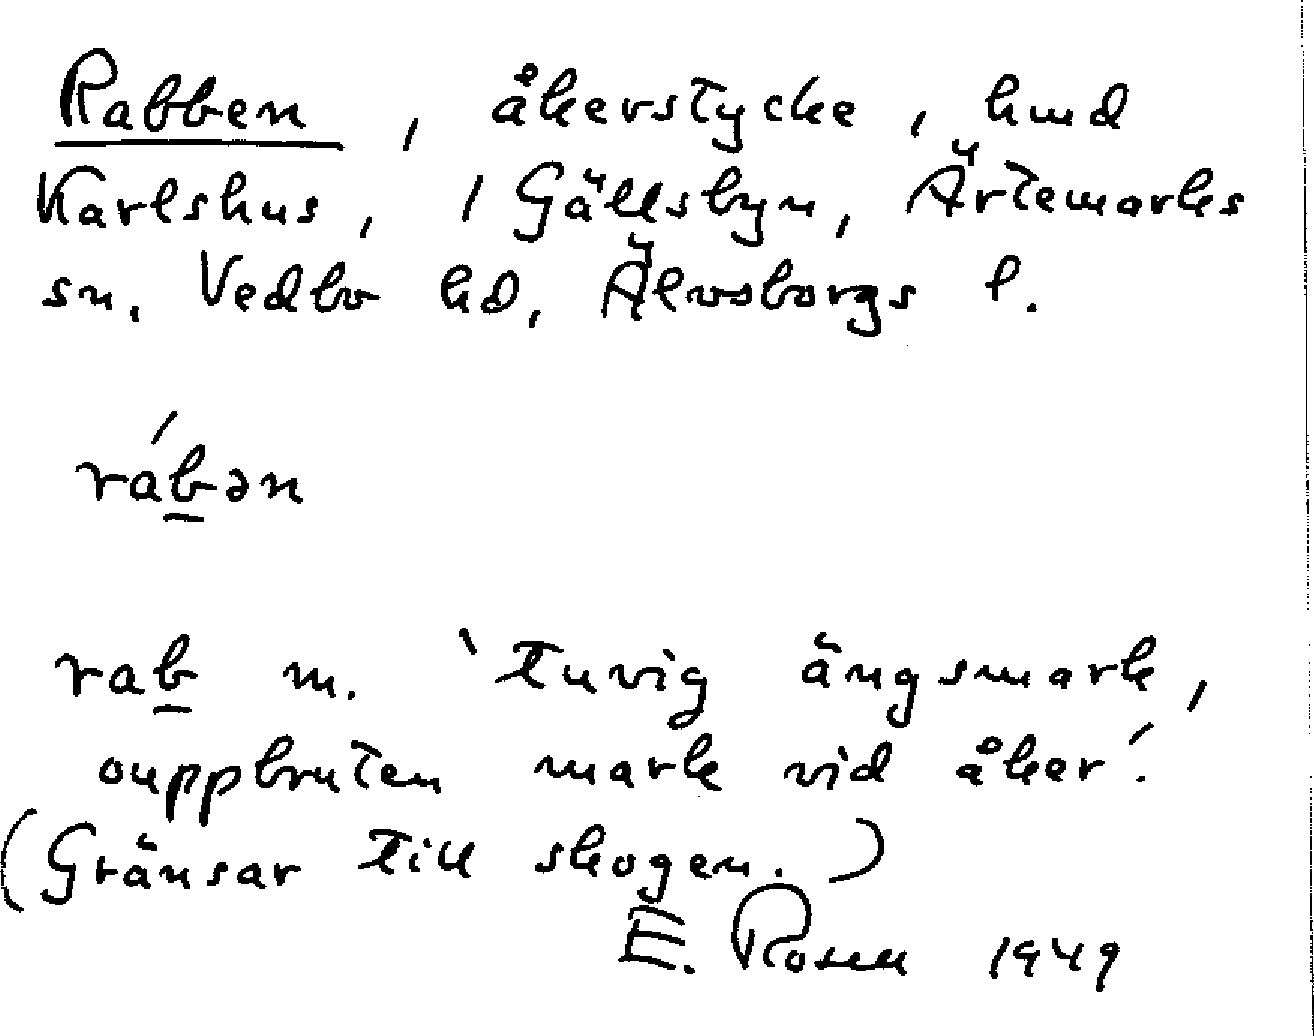 Rabben, åkerstycke, hmd
Karlshus, 1 Gällsbyn, Ärtemarks
sn. Vedbo hd, Älvsborgs l.
rábən
rab m. 'tuvig ängsmark,
ouppbruten mark vid åker'.
(Gränsar till skogen.)
E. Rosen 1949